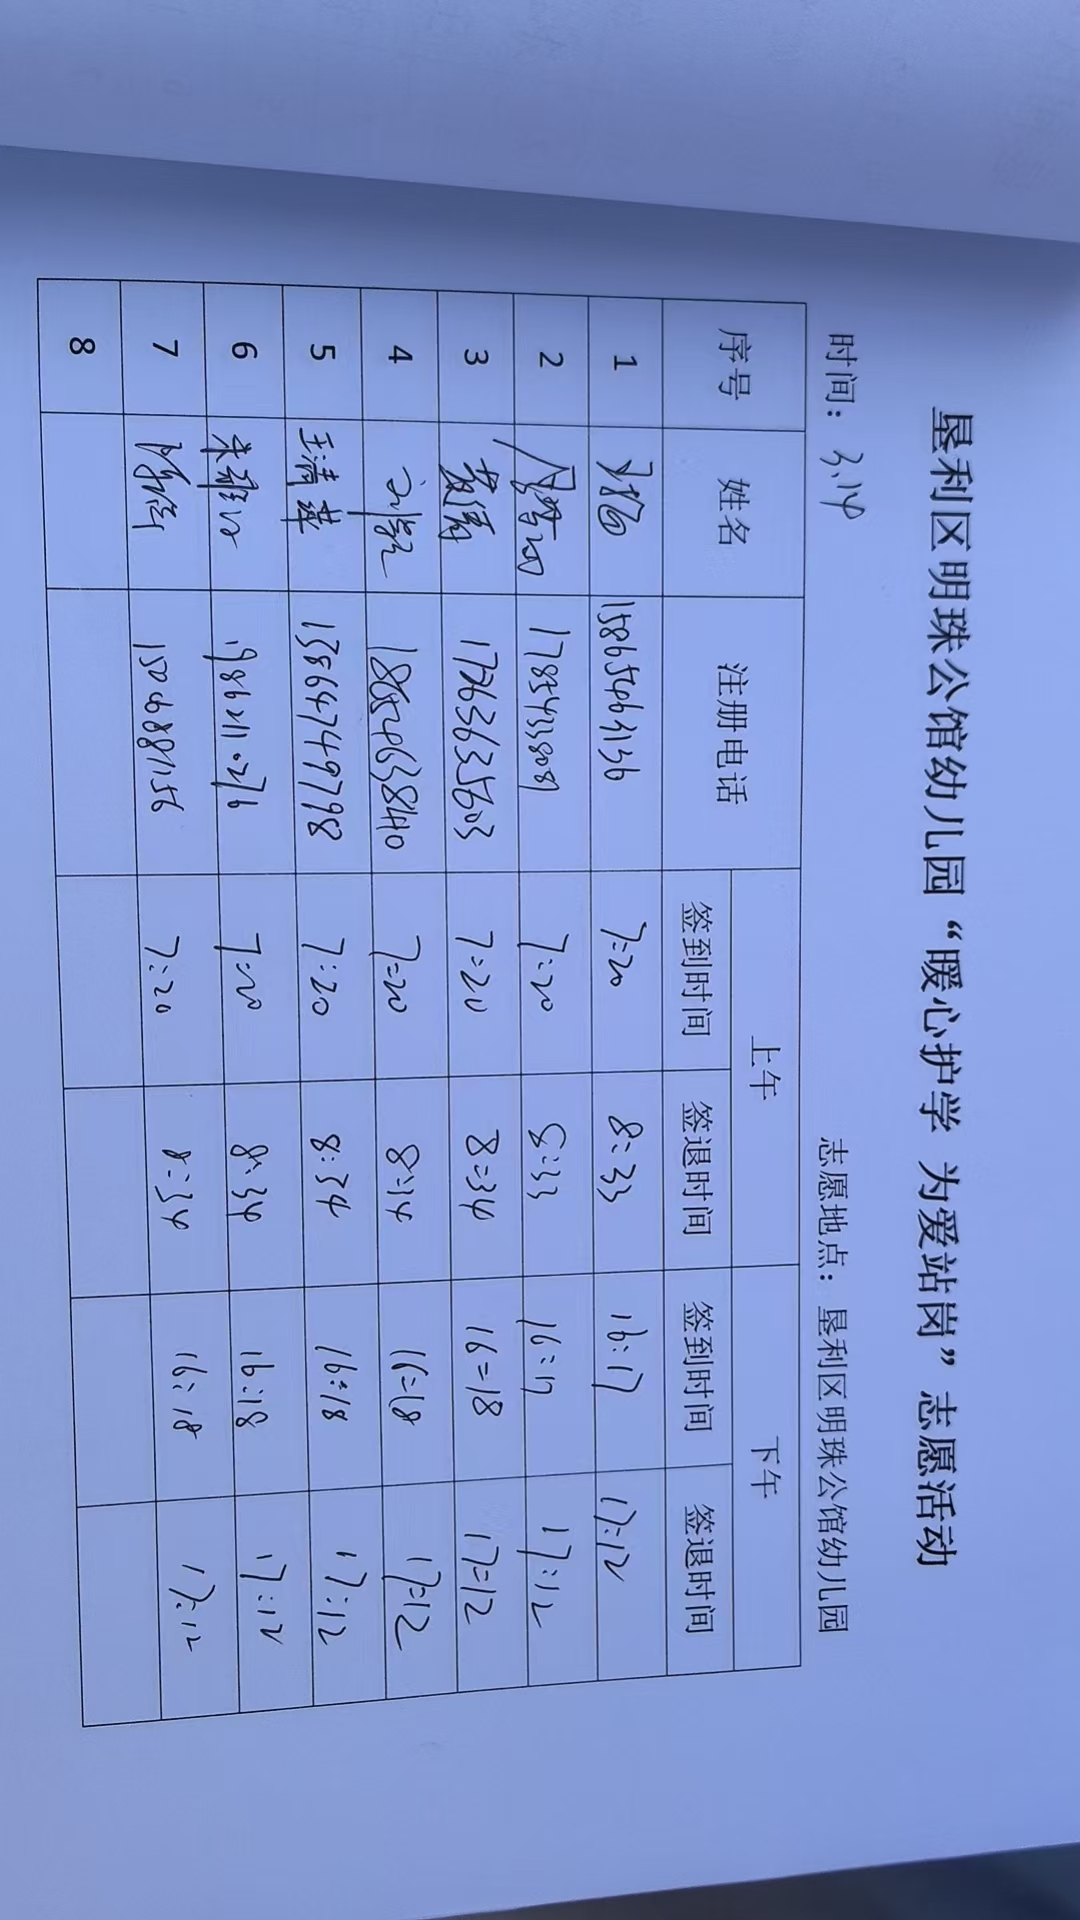 垦利区明珠公馆幼儿园“暖心护学 为爱站岗”志愿活动
时间：3.14 志愿地点：垦利区明珠公馆幼儿园
序号 姓名 注册电话 上午 下午
签到时间 签退时间 签到时间 签退时间
1 15865463136 7:20 8:33 16:17 17:12
2 7:20 8:33 16:17 17:12
3 17763635603 7:20 8:34 16:18 17:12
4 18654638410 7:20 8:34 16:18 17:12
5 王清 7:20 8:34 16:18 17:12
6 7:20 8:34 16:18 17:12
7 7:20 8:34 16:18 17:12
8